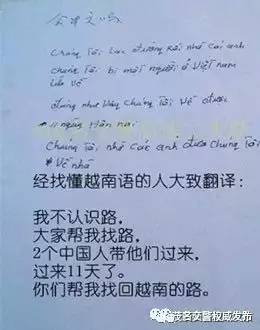 Chúng Tôi Lạc đường Rồi nhờ Các anh
Chúng Tôi bị một người ở Việt nam
đừng như vậy Chúng Tôi Về được
11 ngày Hôm nay
Chúng Tôi nhờ Các anh đưa Chúng Tôi
Về nhà
经找懂越南语的人大致翻译：
我不认识路，
大家帮我找路，
2个中国人带他们过来，
过来11天了。
你们帮我找回越南的路。
茂名交警权威发布